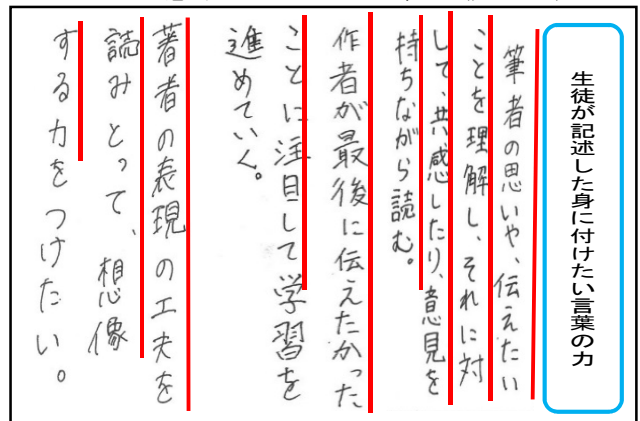 生徒が記述した身に付けたい言葉の力
筆者の思いや、伝えたい
ことを理解し、それに対
して、共感したり、意見を
持ちながら読む。
作者が最後に伝えたかった
ことに注目して学習を
進めていく。
著者の表現の工夫を
読みとって、想像
する力をつけたい。